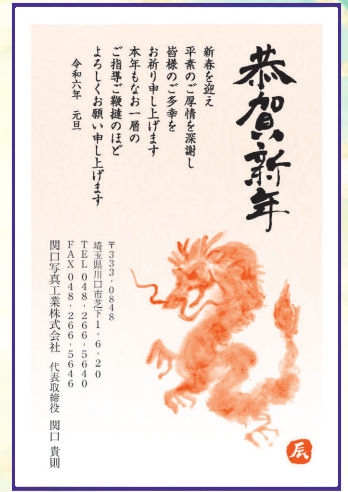 恭賀新年
新春を迎え
平素のご厚情を深謝し
皆様のご多幸を
お祈り申し上げます
本年もなお一層の
ご指導ご鞭撻のほど
よろしくお願い申し上げます
令和六年　元旦
〒333-0848
埼玉県川口市芝下1-6-20
TEL 048-266-5640
FAX 048-266-5646
関口写真工業株式会社　代表取締役　関口 貴則
辰